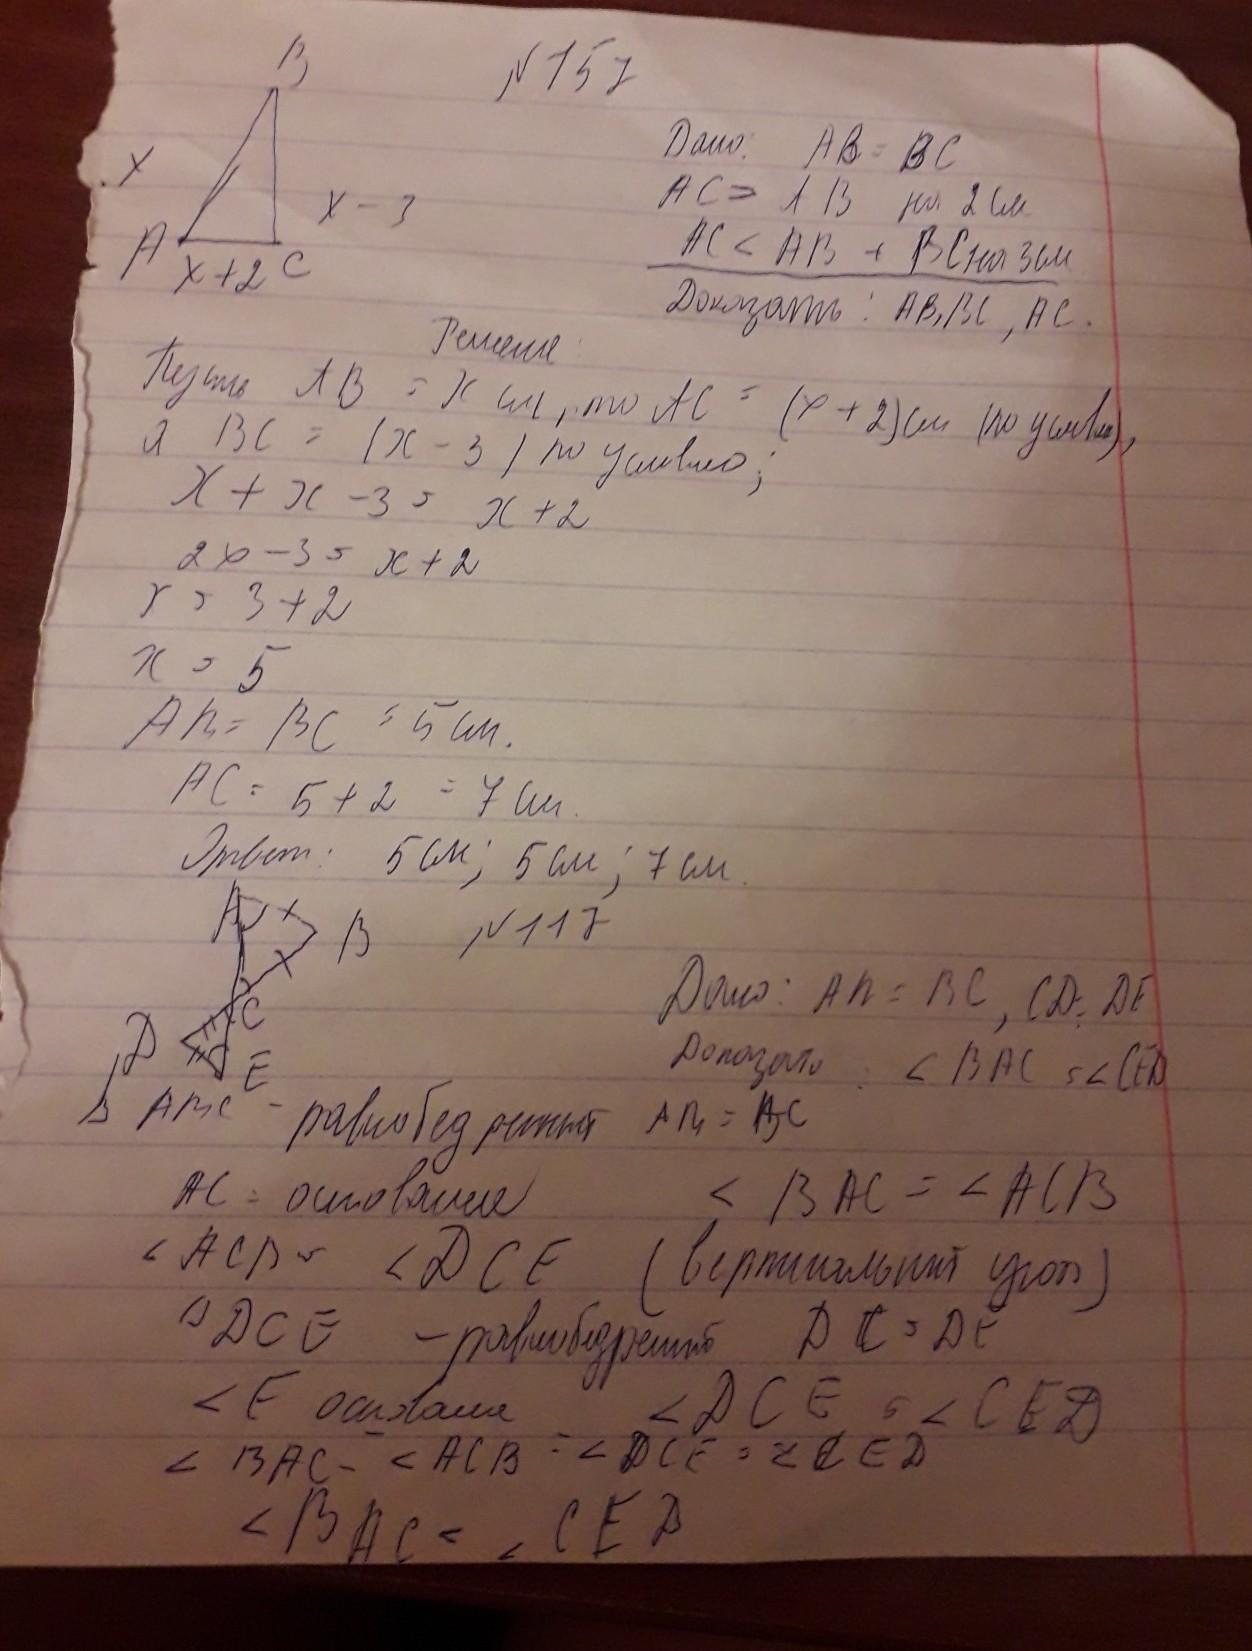 B
№157
x
x - 3
A
x+2 C
Дано: AB = BC
AC > AB на 2 см
AC < AB + BC на 3 см
Доказать: AB, BC, AC.
Решение:
Пусть AB = x см, то AC = (x + 2) см (по условию),
а BC = (x - 3) по условию;
x + x - 3 = x + 2
2x - 3 = x + 2
x = 3 + 2
x = 5
AB = BC = 5 см.
AC = 5 + 2 = 7 см.
Ответ: 5 см; 5 см; 7 см.
A
B
№117
C
D
E
Дано: AB = BC, CD = DE
Доказать: < BAC = < CED
Δ ABC - равнобедренный AB = BC
AC = основание < BAC = < ACB
< ACB = < DCE (вертикальный угол)
Δ DCE - равнобедренный DC = DE
< E основание < DCE = < CED
< BAC = < ACB = < DCE = < CED
< BAC = < CED